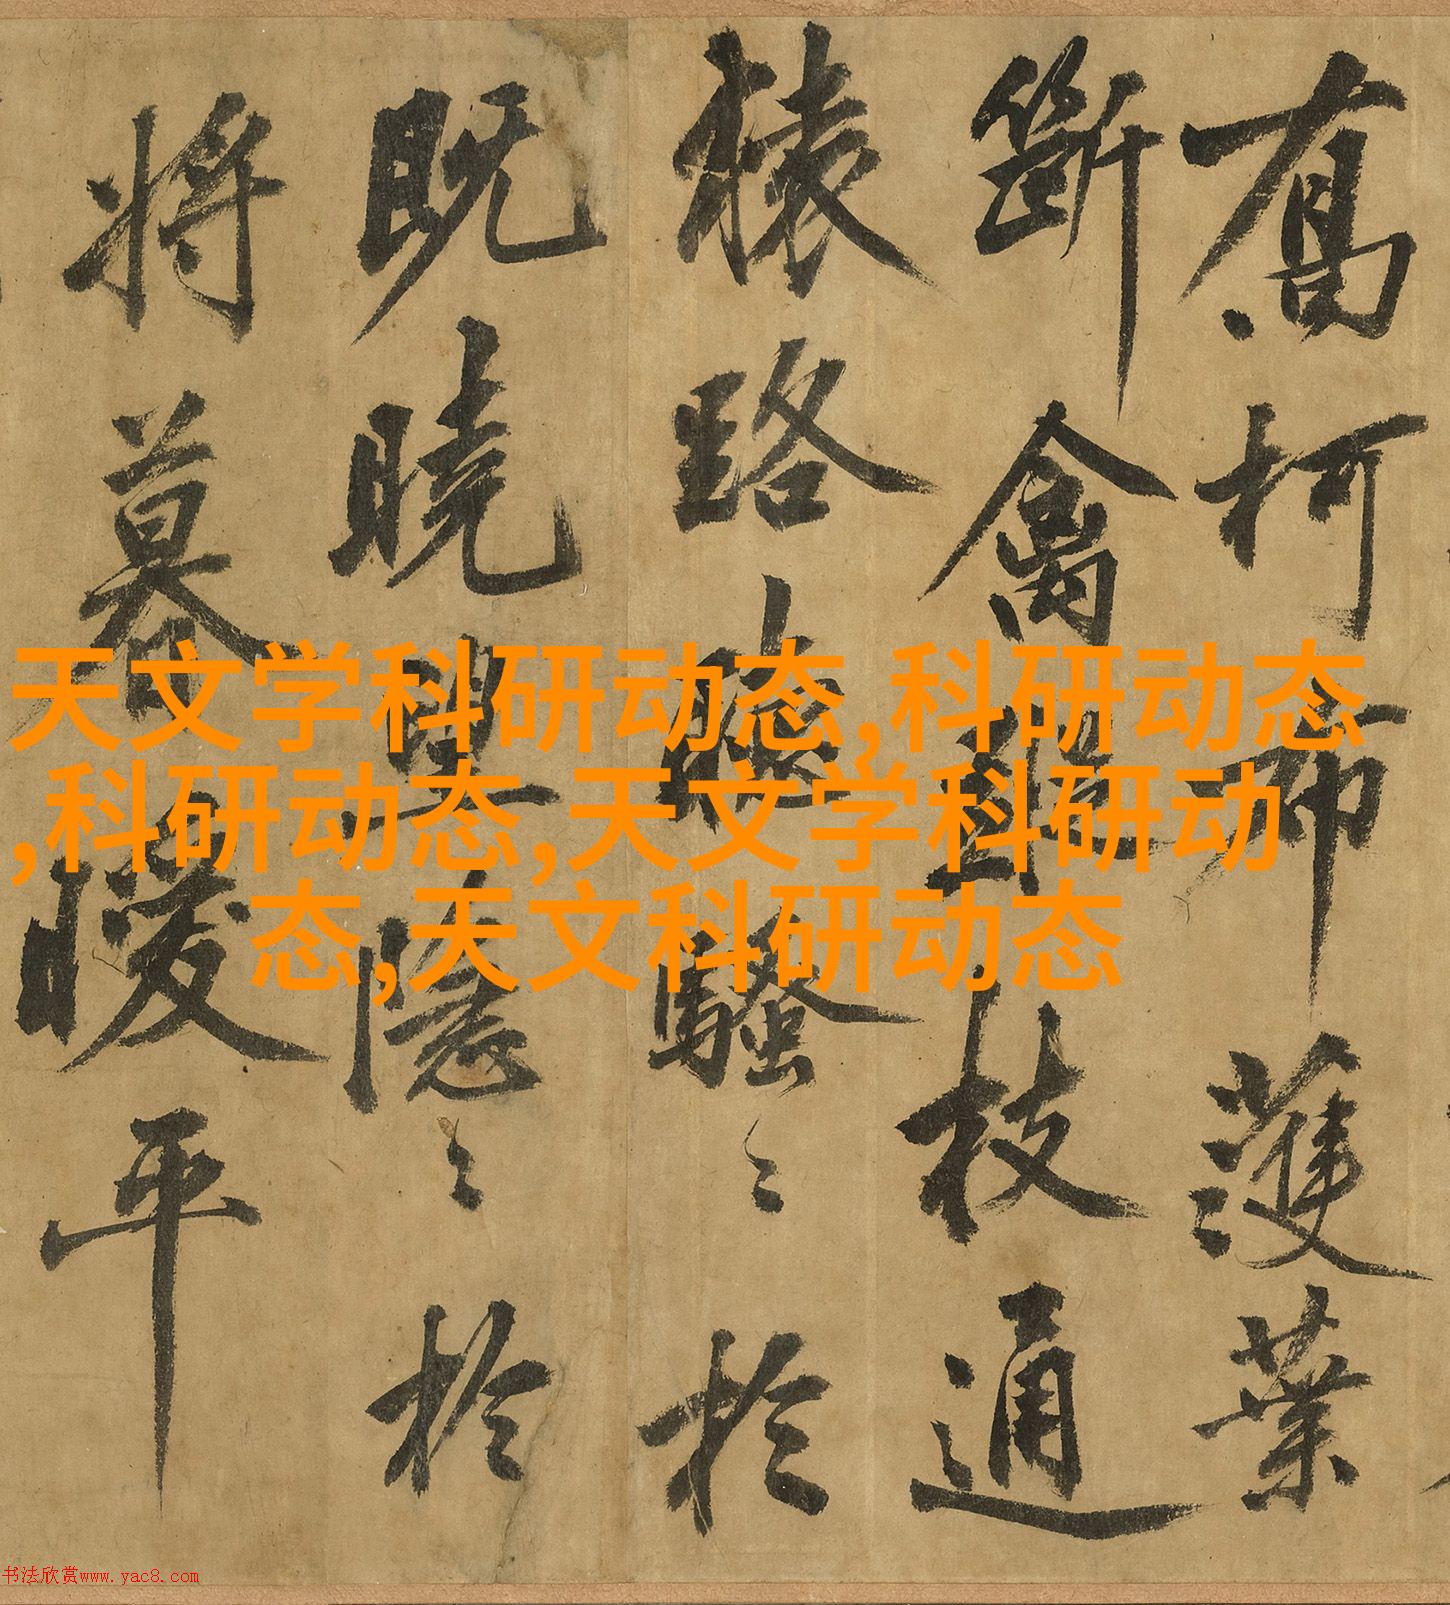 喬柯布濩葉
斷禽枝通
猿路聽騷〻於
既曉望隱〻於
將暮曖平
天文学科研动态,科研动态
,科研动态,天文学科研动
态,天文科研动态
书法欣赏www.yac8.com